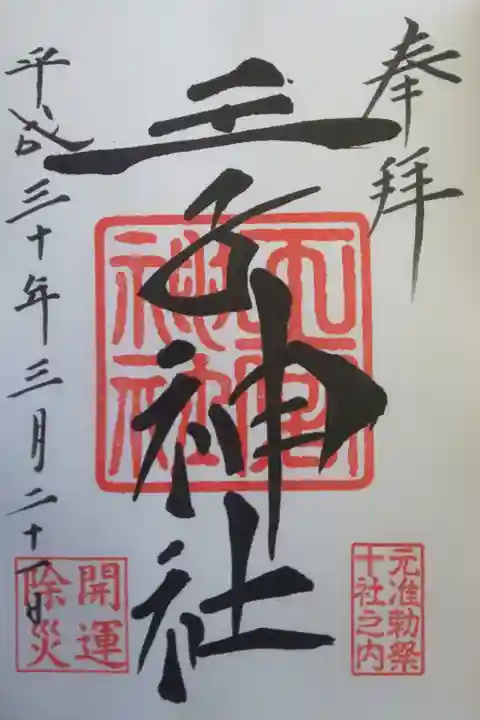 奉拝
王子神社
平成三十年三月二十一日
元准勅祭
十社之内
開運
除災